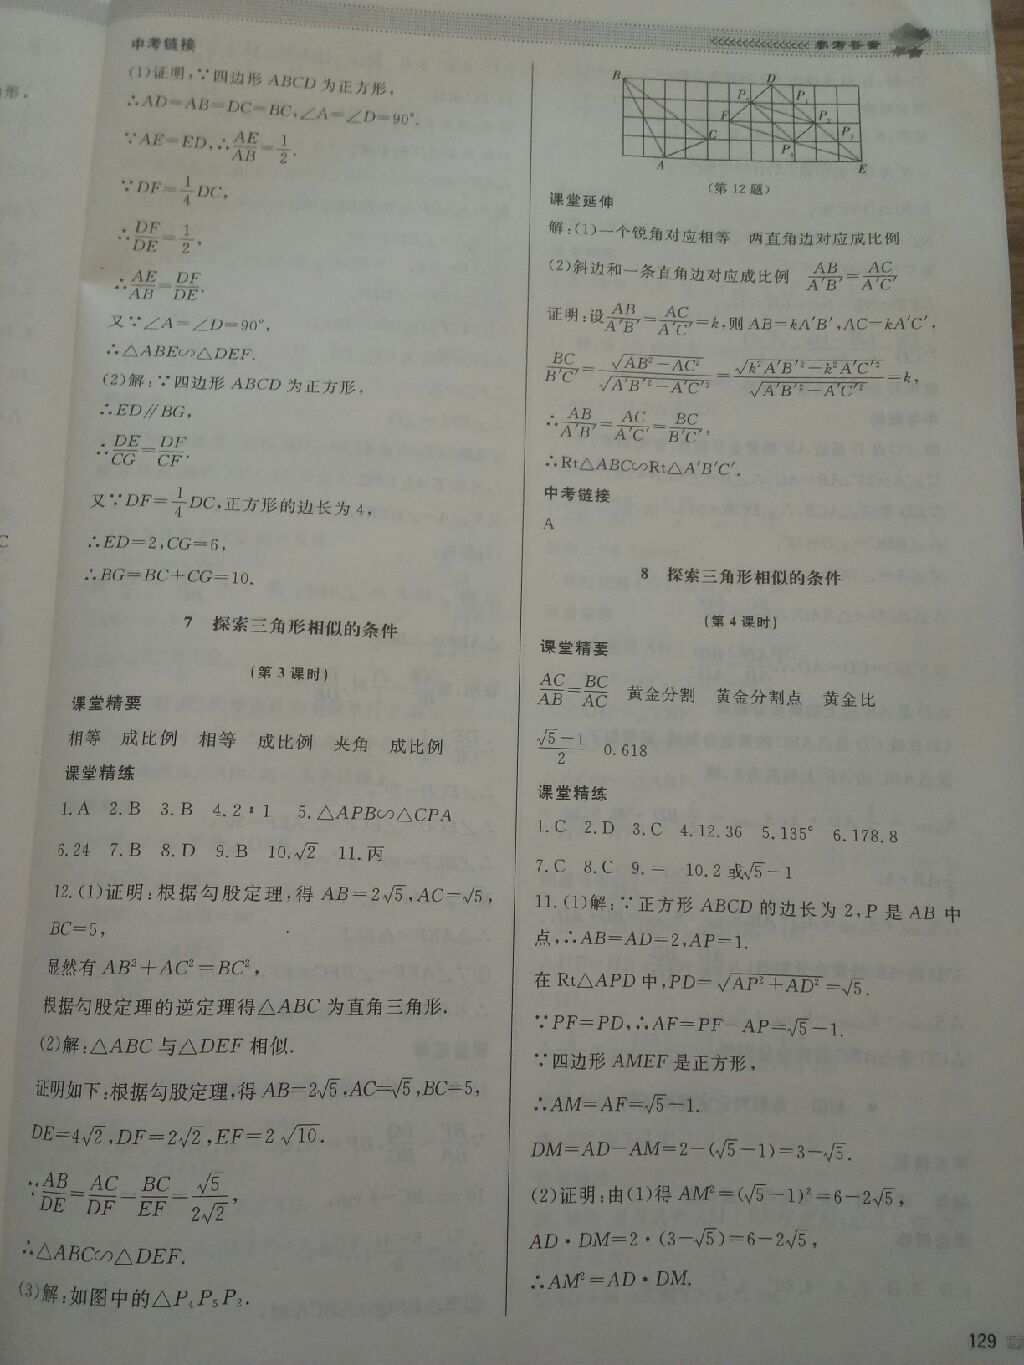 参考答案
中考链接
(1)证明:∵四边形 ABCD 为正方形,
∴AD=AB=DC=BC,∠A=∠D=90°.
∵AE=ED,∴AE/AB=1/2.
∵DF=1/4DC,
∴DF/DE=1/2,
∴AE/AB=DF/DE.
又∵∠A=∠D=90°,
∴△ABE∽△DEF.
(2)解:∵四边形 ABCD 为正方形,
∴ED∥BG,
∴DE/CG=DF/CF.
又∵DF=1/4DC,正方形的边长为 4,
∴ED=2,CG=6,
∴BG=BC+CG=10.
7 探索三角形相似的条件
(第 3 课时)
课堂精要
相等 成比例 相等 成比例 夹角 成比例
课堂精练
1.A 2.B 3.B 4.2∶1 5.△APB∽△CPA
6.24 7.B 8.D 9.B 10.√2 11.丙
12.(1)证明:根据勾股定理,得 AB=2√5,AC=√5,
BC=5,
显然有 AB²+AC²=BC²,
根据勾股定理的逆定理得△ABC 为直角三角形.
(2)解:△ABC 与△DEF 相似.
证明如下:根据勾股定理,得 AB=2√5,AC=√5,BC=5,
DE=4√2,DF=2√2,EF=2√10.
∵AB/DE=AC/DF=BC/EF=√5/(2√2),
∴△ABC∽△DEF.
(3)解:如图中的△P₄P₅P₂.
B D P₅ P₁ F P₂ C P₃ P₄ A E
(第 12 题)
课堂延伸
解:(1)一个锐角对应相等 两直角边对应成比例
(2)斜边和一条直角边对应成比例 AB/A′B′=AC/A′C′
证明:设AB/A′B′=AC/A′C′=k,则 AB=kA′B′,AC=kA′C′,
BC/B′C′=√(AB²-AC²)/√(A′B′²-A′C′²)=√(k²A′B′²-k²A′C′²)/√(A′B′²-A′C′²)=k,
∴AB/A′B′=AC/A′C′=BC/B′C′,
∴Rt△ABC∽Rt△A′B′C′.
中考链接
A
8 探索三角形相似的条件
(第 4 课时)
课堂精要
AC/AB=BC/AC 黄金分割 黄金分割点 黄金比
(√5-1)/2 0.618
课堂精练
1.C 2.D 3.C 4.12.36 5.135° 6.178.8
7.C 8.C 9.= 10.2 或√5-1
11.(1)解:∵正方形 ABCD 的边长为 2,P 是 AB 中
点,∴AB=AD=2,AP=1.
在 Rt△APD 中,PD=√(AP²+AD²)=√5.
∵PF=PD,∴AF=PF-AP=√5-1.
∵四边形 AMEF 是正方形,
∴AM=AF=√5-1.
DM=AD-AM=2-(√5-1)=3-√5.
(2)证明:由(1)得 AM²=(√5-1)²=6-2√5,
AD·DM=2·(3-√5)=6-2√5,
∴AM²=AD·DM.
129